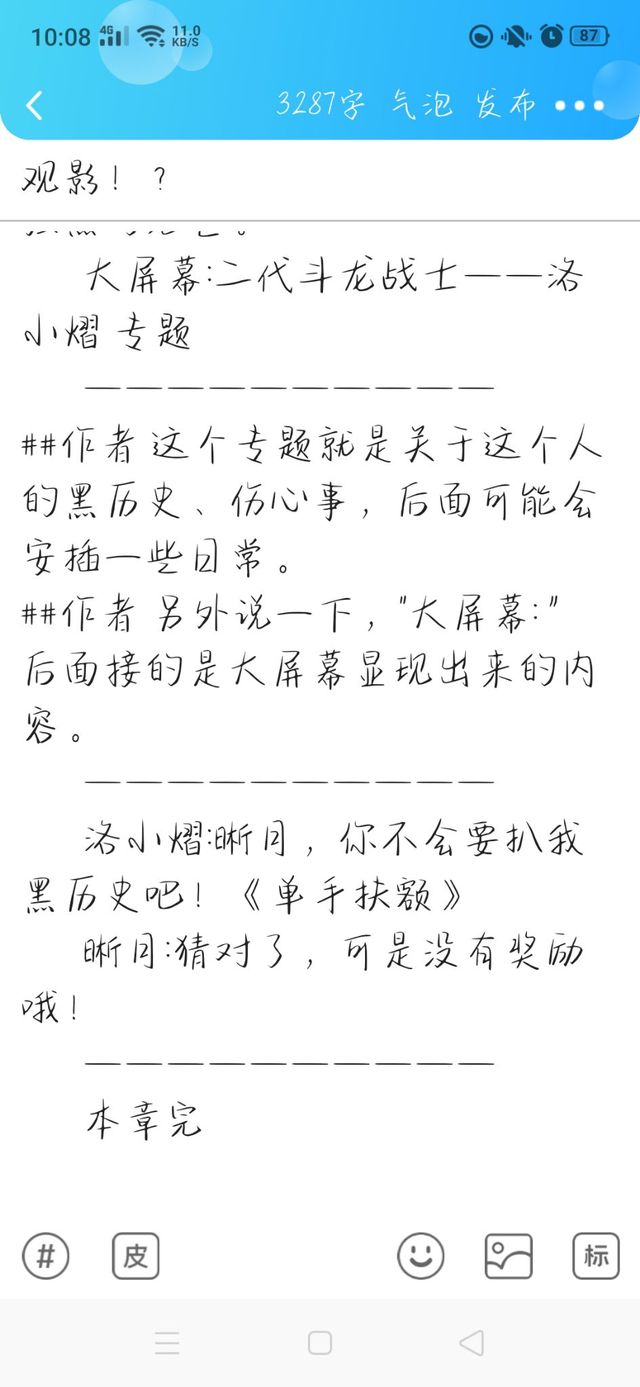 10:08 4G 11.0 KB/S 87
3287字 气泡 发布
观影！？
大屏幕:二代斗龙战士——洛
小熠 专题
——————————
##作者 这个专题就是关于这个人
的黑历史、伤心事，后面可能会
安插一些日常。
##作者 另外说一下，"大屏幕:"
后面接的是大屏幕显现出来的内
容。
——————————
洛小熠:晰月，你不会要扒我
黑历史吧！《单手扶额》
晰月:猜对了，可是没有奖励
哦！
——————————
本章完
# 皮 标